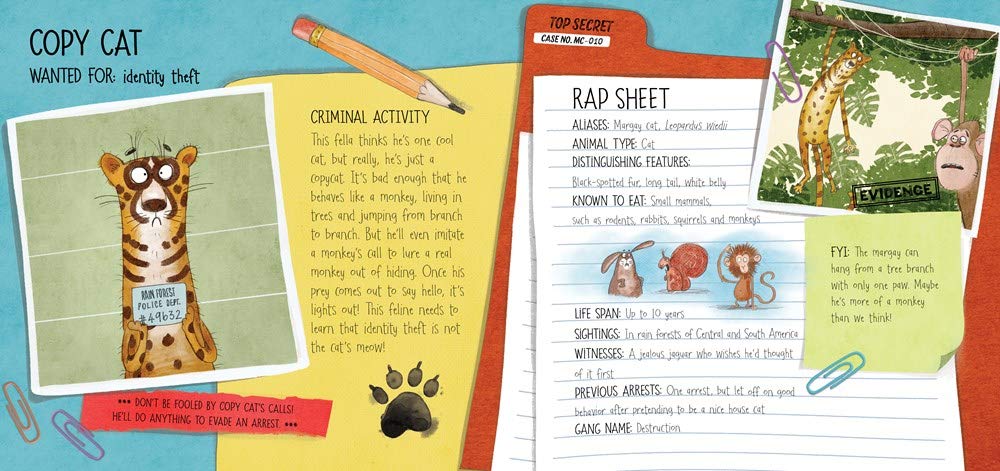 COPY CAT
WANTED FOR: identity theft
RAIN FOREST
POLICE DEPT.
#49632
••• DON'T BE FOOLED BY COPY CAT'S CALLS!
HE'LL DO ANYTHING TO EVADE AN ARREST. •••
CRIMINAL ACTIVITY
This fella thinks he's one cool
cat, but really, he's just a
copycat. It's bad enough that he
behaves like a monkey, living in
trees and jumping from branch
to branch. But he'll even imitate
a monkey's call to lure a real
monkey out of hiding. Once his
prey comes out to say hello, it's
lights out! This feline needs to
learn that identity theft is not
the cat's meow!
TOP SECRET
CASE NO. MC-010
RAP SHEET
ALIASES: Margay cat, Leopardus wiedii
ANIMAL TYPE: Cat
DISTINGUISHING FEATURES:
Black-spotted fur, long tail, white belly
KNOWN TO EAT: Small mammals,
such as rodents, rabbits, squirrels and monkeys
LIFE SPAN: Up to 10 years
SIGHTINGS: In rain forests of Central and South America
WITNESSES: A jealous jaguar who wishes he'd thought
of it first
PREVIOUS ARRESTS: One arrest, but let off on good
behavior after pretending to be a nice house cat
GANG NAME: Destruction
EVIDENCE
FYI: The margay can
hang from a tree branch
with only one paw. Maybe
he's more of a monkey
than we think!